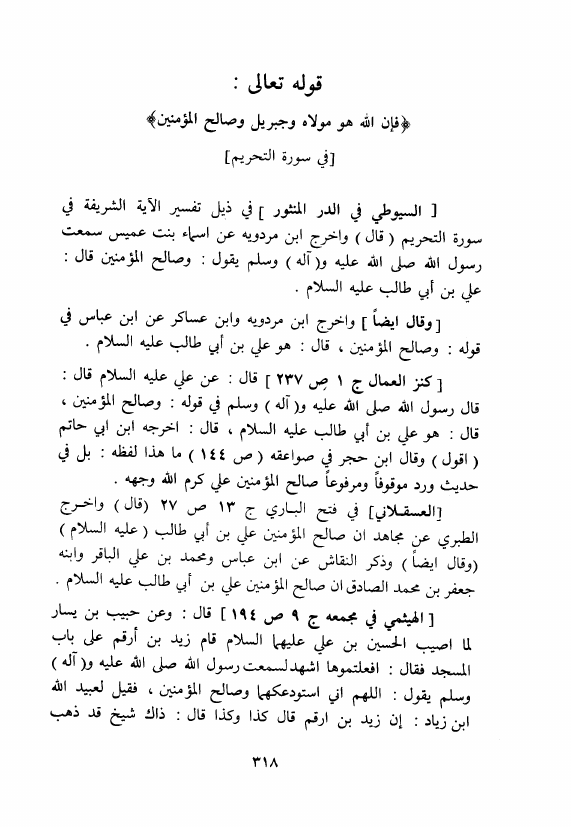 قوله تعالى :
﴿فإن الله هو مولاه وجبريل وصالح المؤمنين﴾
[في سورة التحريم]
[ السيوطي في الدر المنثور ] في ذيل تفسير الآية الشريفة في
سورة التحريم ( قال ) واخرج ابن مردويه عن اسماء بنت عميس سمعت
رسول الله صلى الله عليه و( آله ) وسلم يقول : وصالح المؤمنين قال :
علي بن أبي طالب عليه السلام .
[ وقال ايضاً ] واخرج ابن مردويه وابن عساكر عن ابن عباس في
قوله : وصالح المؤمنين ، قال : هو علي بن أبي طالب عليه السلام .
[ كنز العمال ج ١ ص ٢٣٧ ] قال : عن علي عليه السلام قال :
قال رسول الله صلى الله عليه و( آله ) وسلم في قوله : وصالح المؤمنين ،
قال : هو علي بن أبي طالب عليه السلام ، قال : اخرجه ابن ابي حاتم
( اقول ) وقال ابن حجر في صواعقه ( ص ١٤٤ ) ما هذا لفظه : بل في
حديث ورد موقوفاً ومرفوعاً صالح المؤمنين علي كرم الله وجهه .
[العسقلاني] في فتح الباري ج ١٣ ص ٢٧ (قال) واخرج
الطبري عن مجاهد ان صالح المؤمنين علي بن أبي طالب ( عليه السلام )
(وقال ايضاً ) وذكر النقاش عن ابن عباس ومحمد بن علي الباقر وابنه
جعفر بن محمد الصادق ان صالح المؤمنين علي بن أبي طالب عليه السلام .
[ الهيثمي في مجمعه ج ٩ ص ١٩٤ ] قال : وعن حبيب بن يسار
لما اصيب الحسين بن علي عليهما السلام قام زيد بن أرقم على باب
المسجد فقال : افعلتموها اشهد لسمعت رسول الله صلى الله عليه و( آله )
وسلم يقول : اللهم اني استودعكهما وصالح المؤمنين ، فقيل لعبيد الله
ابن زياد : إن زيد بن ارقم قال كذا وكذا قال : ذاك شيخ قد ذهب
٣١٨